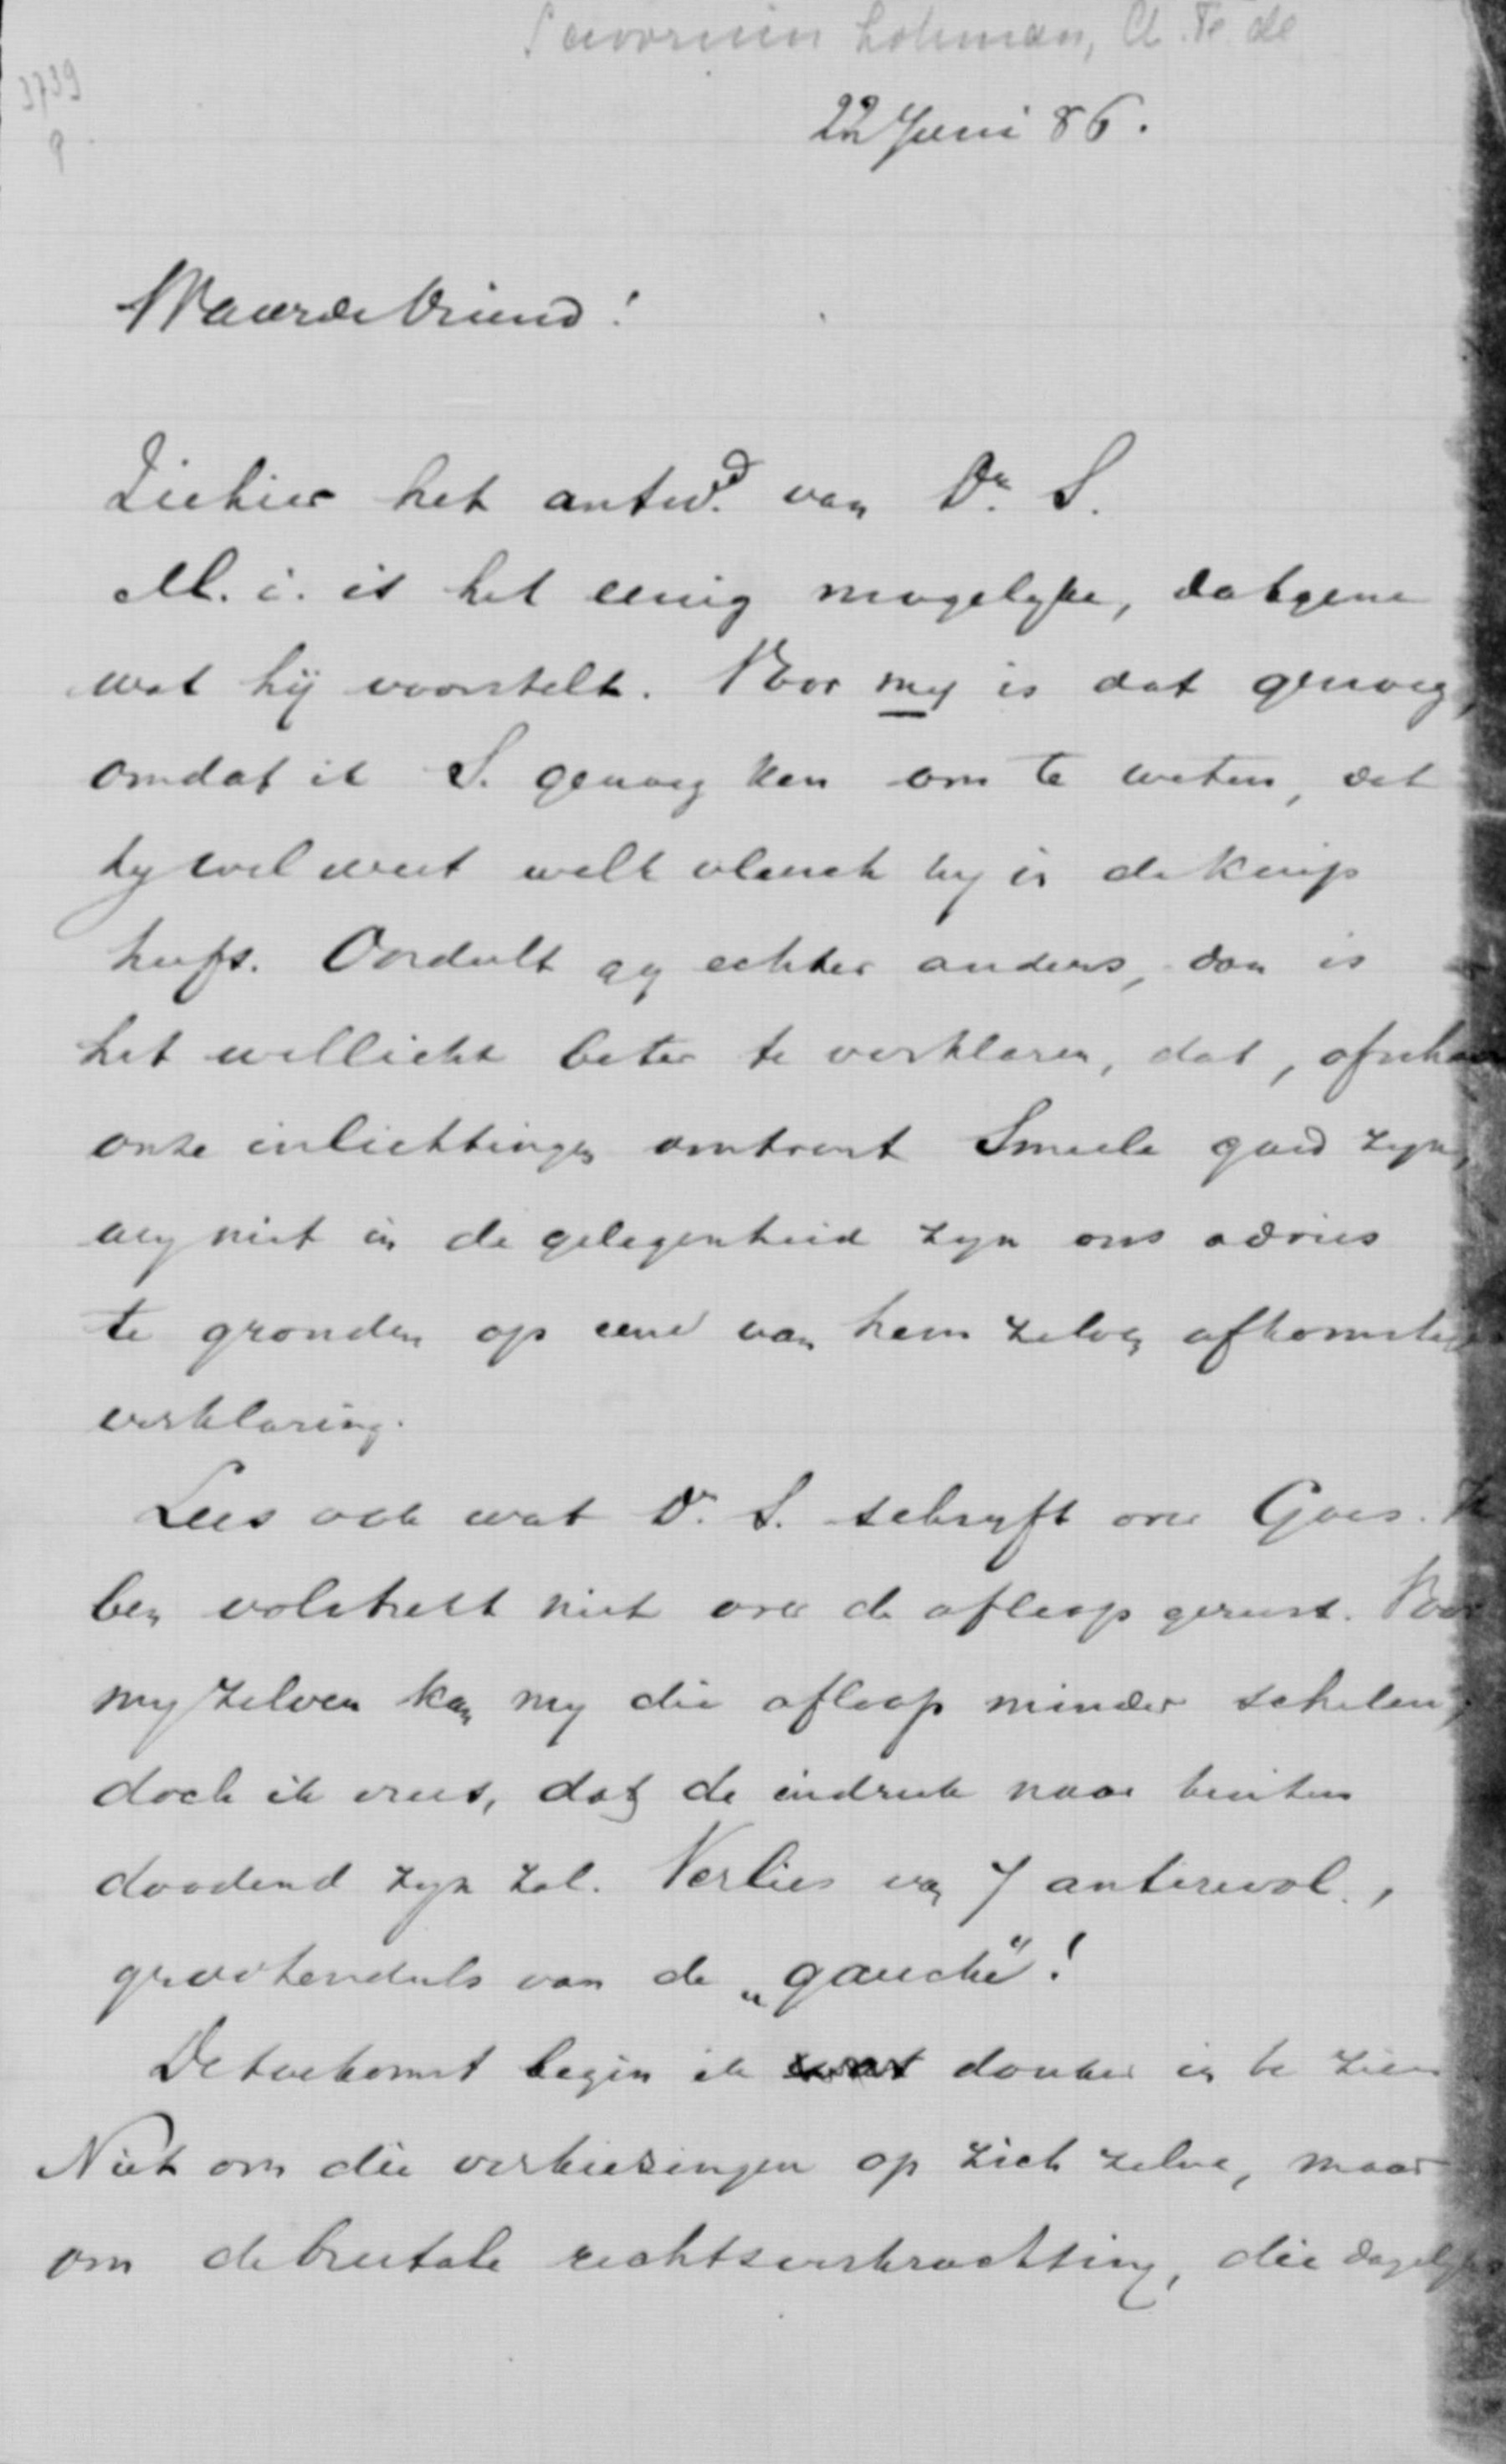 Savornin Lohman, A. F. de
3739
9
22 Juni 86.
Waarde Vriend!
Ziehier het antwd. van Dr. S.
M. i. is het eenig mogelyke, datgene
wat hij voorstelt. Voor my is dat genoeg,
omdat ik S. genoeg ken om te weten, dat
hy wel weet welk vleesch hy in de kuip
heeft. Oordeelt gy echter anders, dan is
het wellicht beter te verklaren, dat, ofschoon
onze inlichtingen omtrent Smeele goed zyn,
wy niet in de gelegenheid zyn ons advies
te gronden op eene van hem zelven afkomstige
verklaring.
Lees ook wat Dr. S. schryft over Goes. Ik
ben volstrekt niet over de afloop gerust. Voor
my zelven kan my die afloop minder schelen,
doch ik vrees, dat de indruk naar buiten
doodend zyn zal. Verlies van 7 antirevol.,
grootendeels van de „gauche"!
De toekomst begin ik donker in te zien
Niet om die verkiezingen op zich zelve, maar
om de brutale rechtsverkrachting, die dagelyks